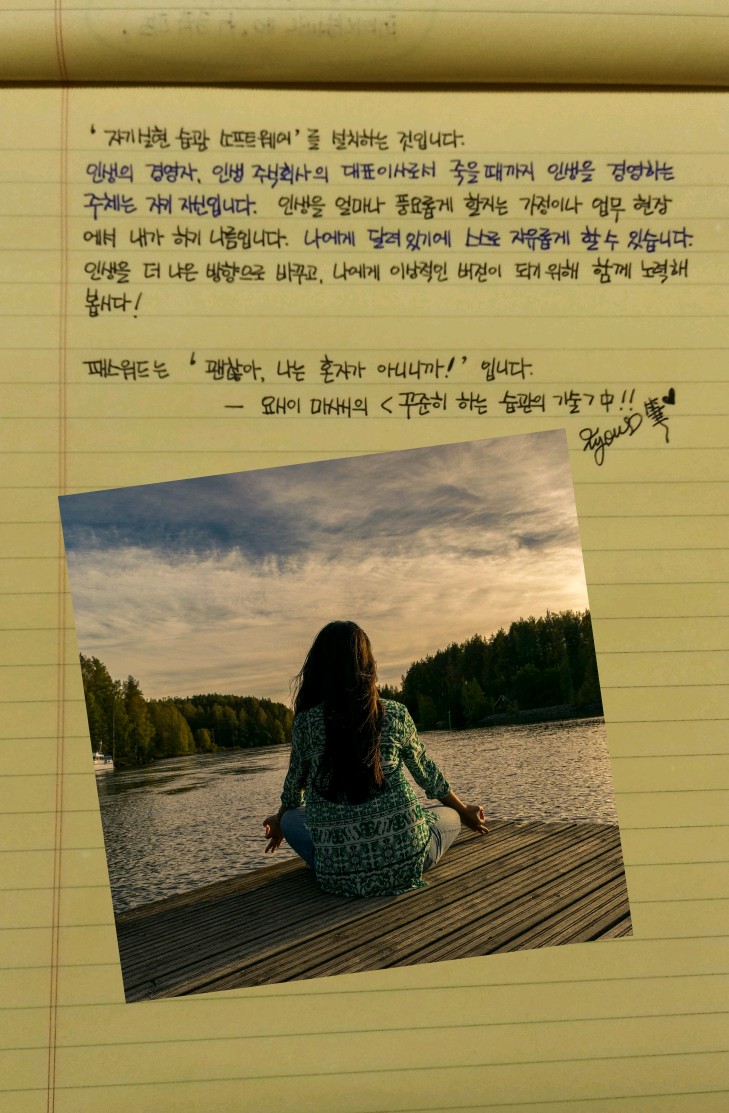 '자기실현 습관 소프트웨어'를 설치하는 것입니다.
인생의 경영자, 인생 주식회사의 대표이사로서 죽을 때까지 인생을 경영하는
주체는 자기 자신입니다. 인생을 얼마나 풍요롭게 할지는 가정이나 업무 현장
에서 내가 하기 나름입니다. 나에게 달려 있기에 스스로 자유롭게 할 수 있습니다.
인생을 더 나은 방향으로 바꾸고, 나에게 이상적인 버전이 되기 위해 함께 노력해
봅시다!
패스워드는 '괜찮아, 나는 혼자가 아니니까!' 입니다.
— 요시이 마사시의 <꾸준히 하는 습관의 기술> 中!!